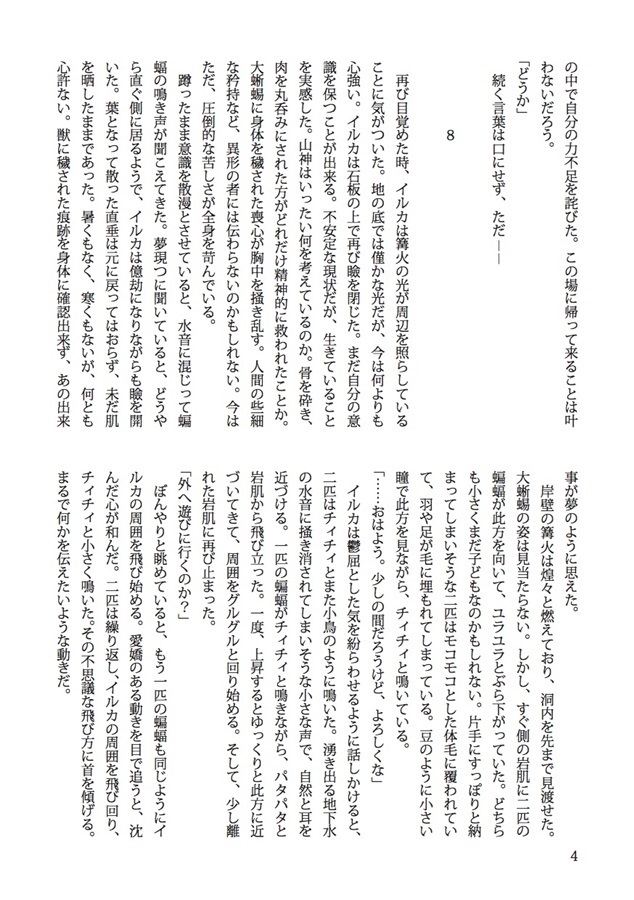 の中で自分の力不足を詫びた。この場に帰って来ることは叶
わないだろう。
「どうか」
続く言葉は口にせず、ただ――
8
再び目覚めた時、イルカは篝火の光が周辺を照らしている
ことに気がついた。地の底では僅かな光だが、今は何よりも
心強い。イルカは石板の上で再び瞼を閉じた。まだ自分の意
識を保つことが出来る。不安定な現状だが、生きていること
を実感した。山神はいったい何を考えているのか。骨を砕き、
肉を丸呑みにされた方がどれだけ精神的に救われたことか。
大蜥蜴に身体を穢された喪心が胸中を掻き乱す。人間の些細
な矜持など、異形の者には伝わらないのかもしれない。今は
ただ、圧倒的な苦しさが全身を苛んでいる。
蹲ったまま意識を散漫とさせていると、水音に混じって蝙
蝠の鳴き声が聞こえてきた。夢現つに聞いていると、どうや
ら直ぐ側に居るようで、イルカは億劫になりながらも瞼を開
いた。葉となって散った直垂は元に戻ってはおらず、未だ肌
を晒したままであった。暑くもなく、寒くもないが、何とも
心許ない。獣に穢された痕跡を身体に確認出来ず、あの出来
事が夢のように思えた。
岸壁の篝火は煌々と燃えており、洞内を先まで見渡せた。
大蜥蜴の姿は見当たらない。しかし、すぐ側の岩肌に二匹の
蝙蝠が此方を向いて、ユラユラとぶら下がっていた。どちら
も小さくまだ子どもなのかもしれない。片手にすっぽりと納
まってしまいそうな二匹はモコモコとした体毛に覆われてい
て、羽や足が毛に埋もれてしまっている。豆のように小さい
瞳で此方を見ながら、チィチィと鳴いている。
「……おはよう。少しの間だろうけど、よろしくな」
イルカは鬱屈とした気を紛らわせるように話しかけると、
二匹はチィチィとまた小鳥のように鳴いた。湧き出る地下水
の水音に掻き消されてしまいそうな小さな声で、自然と耳を
近づける。一匹の蝙蝠がチィチィと鳴きながら、パタパタと
岩肌から飛び立った。一度、上昇するとゆっくりと此方に近
づいてきて、周囲をグルグルと回り始める。そして、少し離
れた岩肌に再び止まった。
「外へ遊びに行くのか？」
ぼんやりと眺めていると、もう一匹の蝙蝠も同じようにイ
ルカの周囲を飛び始める。愛嬌のある動きを目で追うと、沈
んだ心が和んだ。二匹は繰り返し、イルカの周囲を飛び回り、
チィチィと小さく鳴いた。その不思議な飛び方に首を傾げる。
まるで何かを伝えたいような動きだ。
4